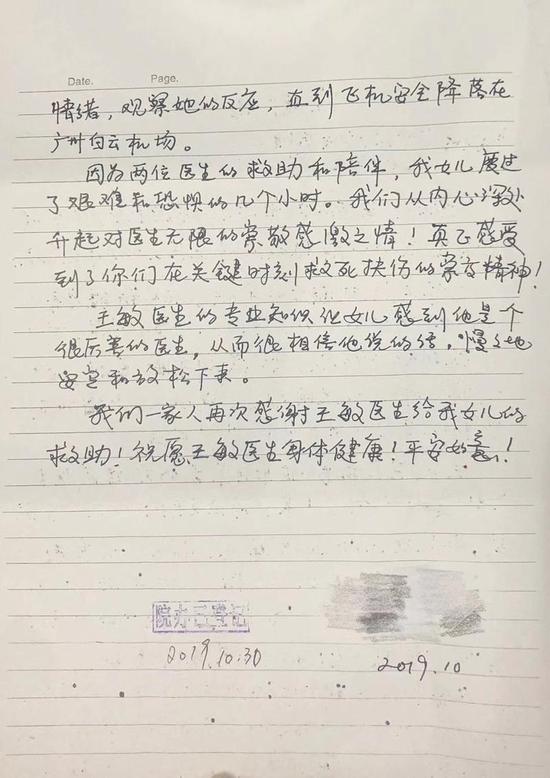 Date. Page.
情绪，观察她的反应，直到飞机安全降落在
广州白云机场。
因为两位医生的救助和陪伴，我女儿度过
了艰难和恐惧的几个小时。我们从内心深处
升起对医生无限的崇敬感激之情！真正感受
到了你们在关键时刻救死扶伤的崇高精神！
王敏医生的专业知识让女儿感到他是个
很厉害的医生，从而很相信他说的话，慢慢地
安定和放松下来。
我们一家人再次感谢王敏医生给我女儿的
救助！祝愿王敏医生身体健康！平安如意！
院办已登记
2019.10.30
2019.10